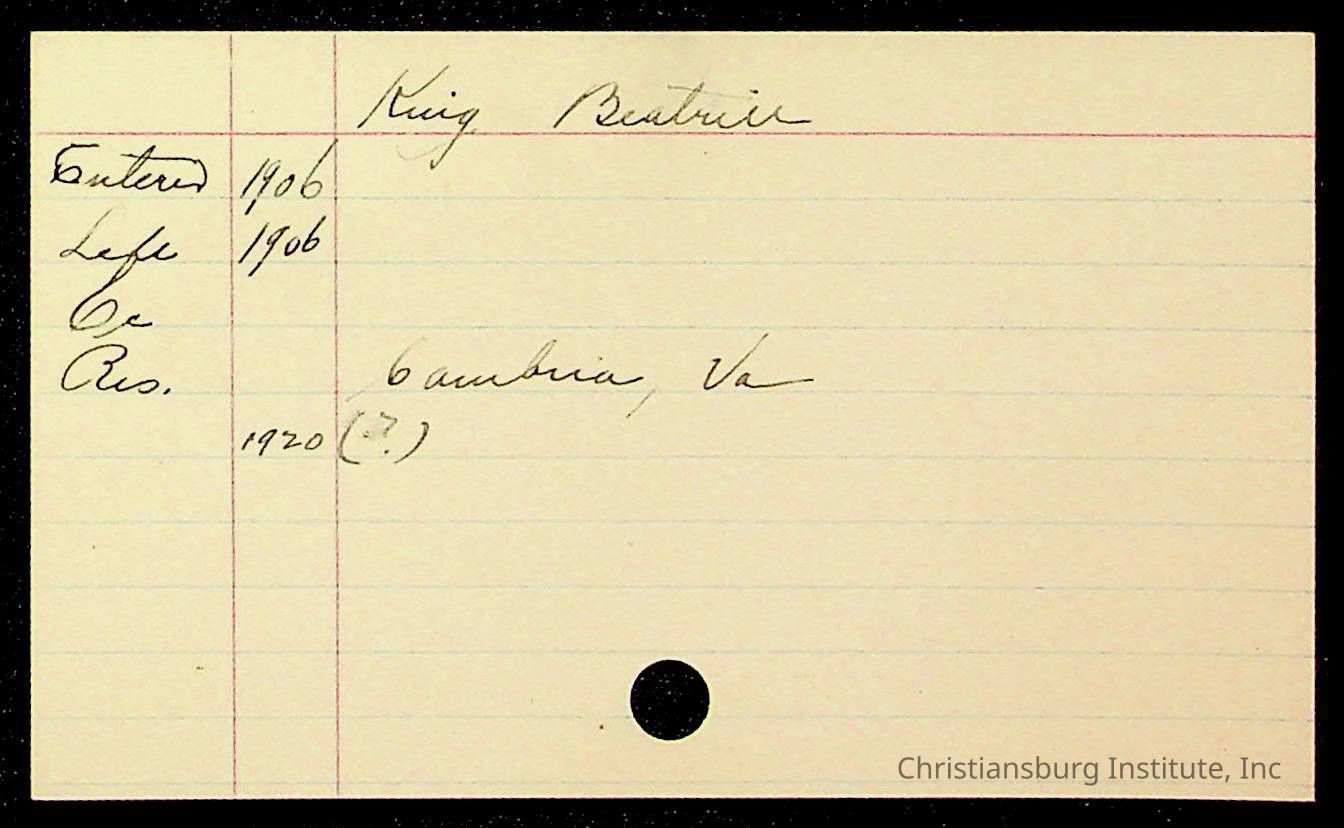 King Beatrice
Entered 1906
Left 1906
Oc
Res. Cambria, Va
1920 (?)
Christiansburg Institute, Inc